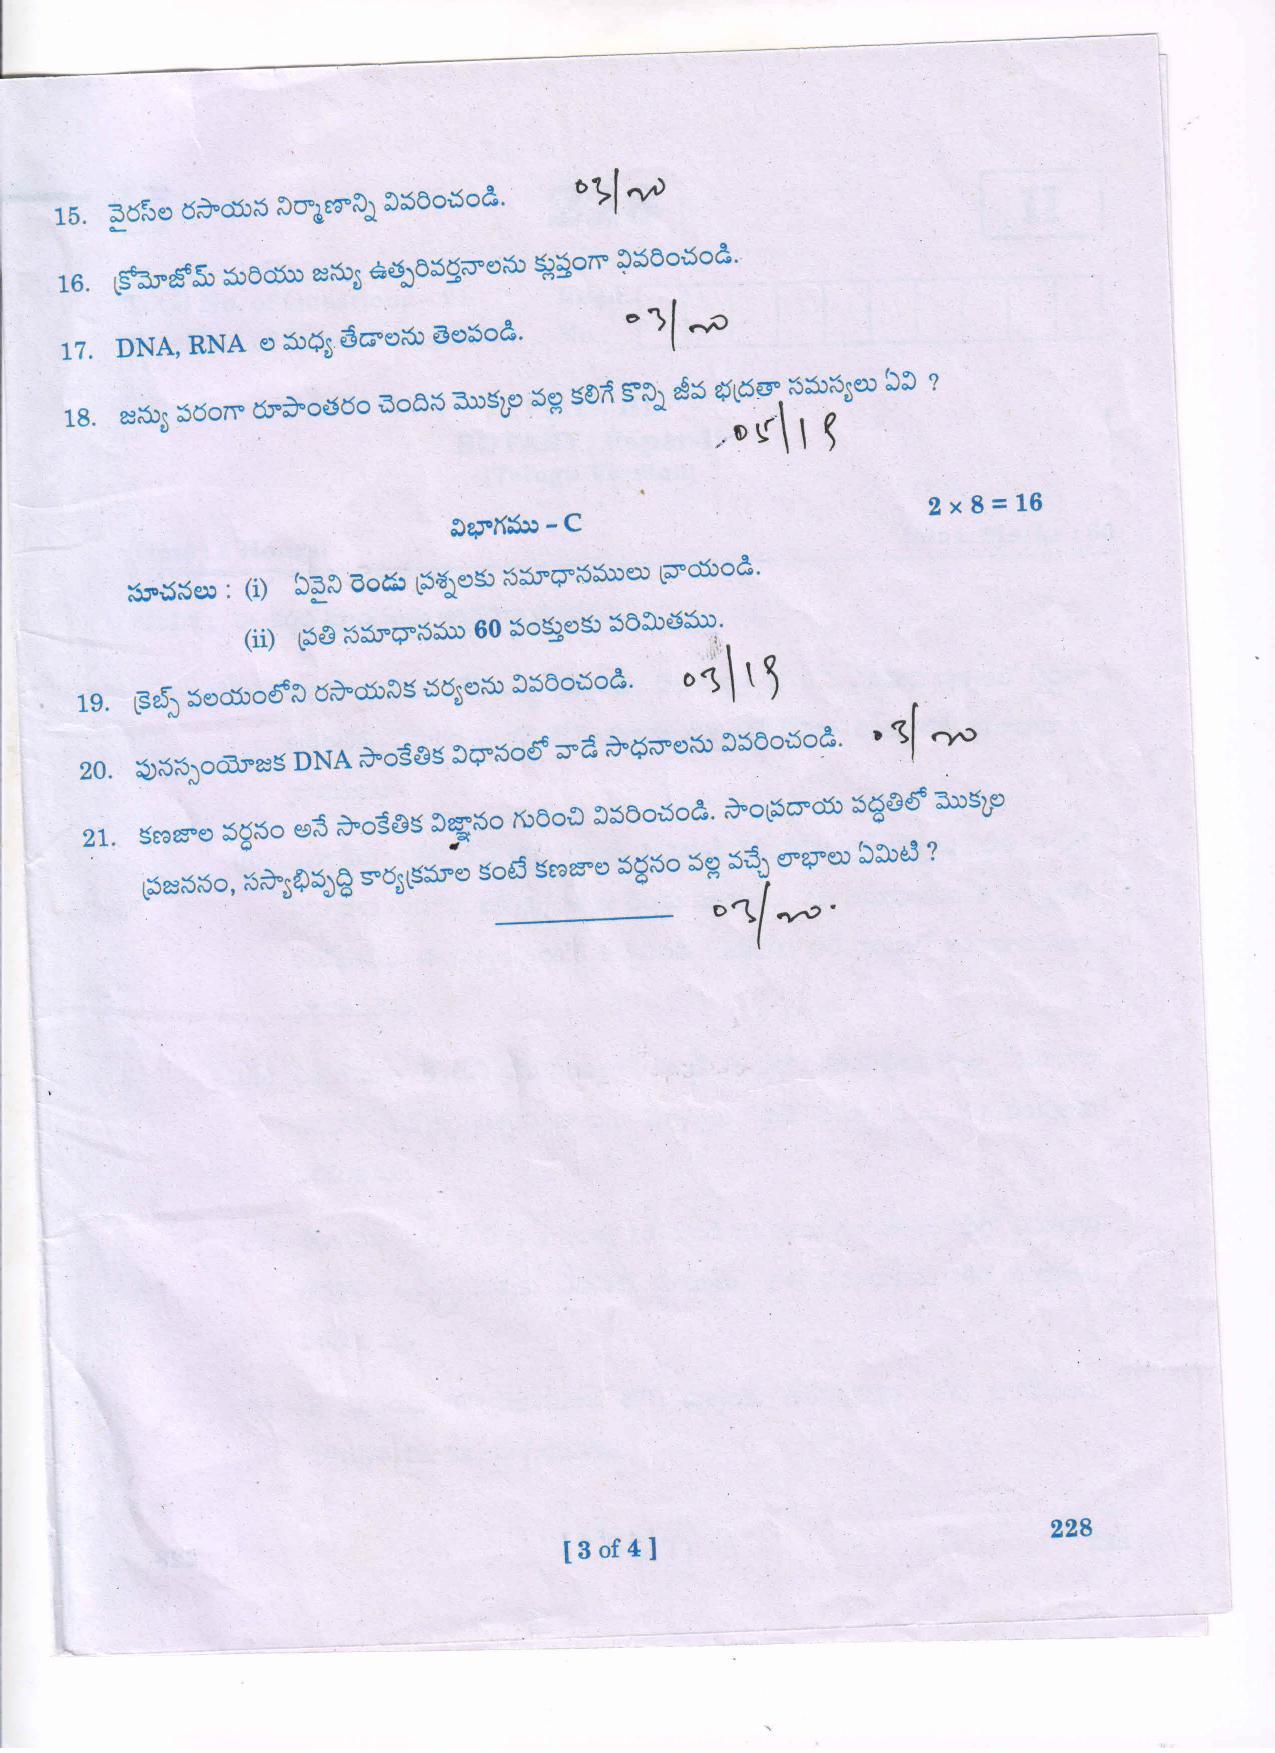 15. వైరస్‌ల రసాయన నిర్మాణాన్ని వివరించండి. 03/20
16. క్రోమోజోమ్ మరియు జన్యు ఉత్పరివర్తనాలను క్లుప్తంగా వివరించండి.
17. DNA, RNA ల మధ్య తేడాలను తెలపండి. 03/20
18. జన్యు పరంగా రూపాంతరం చెందిన మొక్కల వల్ల కలిగే కొన్ని జీవ భద్రతా సమస్యలు ఏవి ?
05/19
2 × 8 = 16
విభాగము – C
సూచనలు : (i) ఏవైని రెండు ప్రశ్నలకు సమాధానములు వ్రాయండి.
(ii) ప్రతి సమాధానము 60 పంక్తులకు పరిమితము.
19. క్రెబ్స్ వలయంలోని రసాయనిక చర్యలను వివరించండి. 03/19
20. పునస్సంయోజక DNA సాంకేతిక విధానంలో వాడే సాధనాలను వివరించండి. 03/20
21. కణజాల వర్ధనం అనే సాంకేతిక విజ్ఞానం గురించి వివరించండి. సాంప్రదాయ పద్ధతిలో మొక్కల
ప్రజననం, సస్యాభివృద్ధి కార్యక్రమాల కంటే కణజాల వర్ధనం వల్ల వచ్చే లాభాలు ఏమిటి ?
03/20.
[ 3 of 4 ]
228